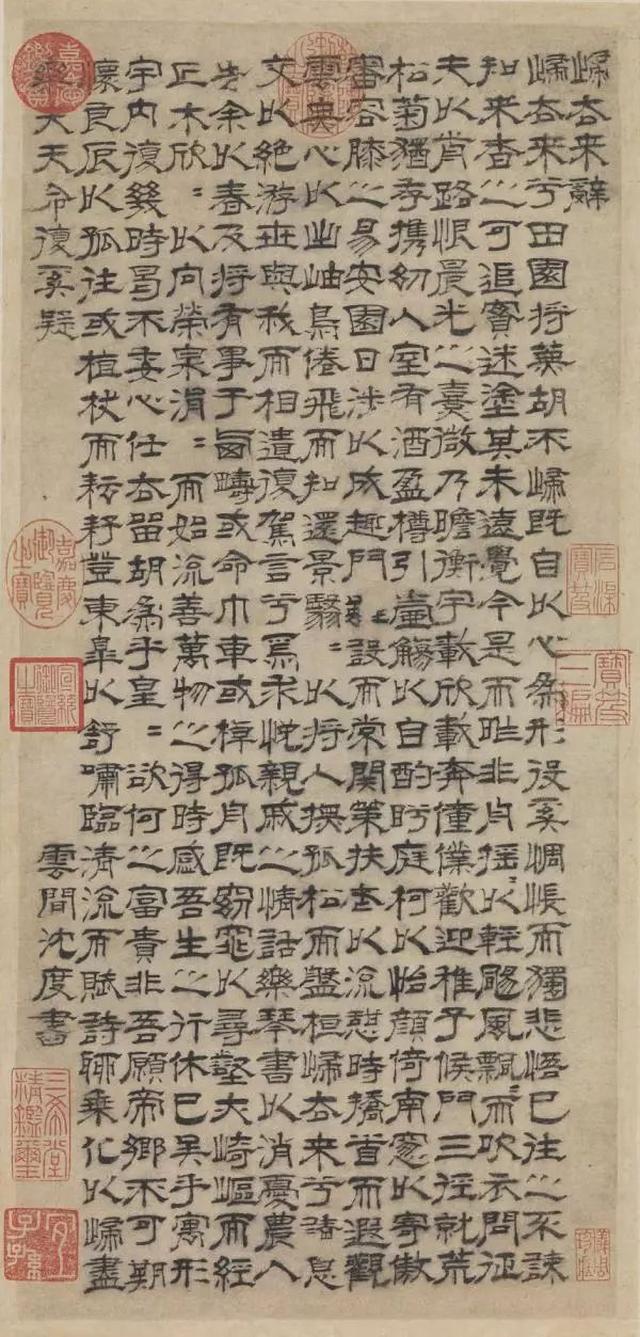 歸去來辭
歸去來兮田園將蕪胡不歸既自以心為形役奚惆悵而獨悲悟已往之不諫
知來者之可追實迷塗其未遠覺今是而昨非舟搖〻以輕颺風飄〻而吹衣問征
夫以前路恨晨光之熹微乃瞻衡宇載欣載奔僮僕歡迎稚子候門三徑就荒
松菊猶存攜幼入室有酒盈樽引壺觴以自酌眄庭柯以怡顏倚南窻以寄傲
審容膝之易安園日涉以成趣門雖設而常關策扶老以流憩時矯首而遐觀
雲無心以出岫鳥倦飛而知還景翳〻以將入撫孤松而盤桓歸去來兮請息
交以絕游世與我而相遺復駕言兮焉求悅親戚之情話樂琴書以消憂農人
告余以春及將有事于西疇或命巾車或棹孤舟既窈窕以尋壑亦崎嶇而經
丘木欣〻以向榮泉涓〻而始流善萬物之得時感吾生之行休已矣乎寓形
宇內復幾時曷不委心任去留胡為乎皇〻欲何之富貴非吾願帝鄉不可期
懷良辰以孤往或植杖而耘耔登東皋以舒嘯臨清流而賦詩聊乘化以歸盡
樂夫天命復奚疑
雲間沈度書
石渠寶笈
寶笈三編
嘉慶御覽之寶
宣統御覽之寶
三希堂精鑑璽
宜子孫